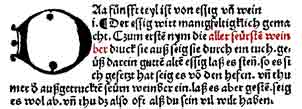 Das fünffte teyl ist von essig vñ wein
i. Der essig wirt manigfeltigklich gemacht. Czum erstē nym die aller seürstē wein
ber druck sie auß seig sie durch ein tuch. geüß
darein gutē altē essig laß es stēn. so es si
ch gesetz hat seig es vō den hefen. vñ thu
mer ð außgetrucktē seürn weinber ein. laß es aber gestē. seig
es wol ab. vñ thu dz also of alß du sein vil wilt haben.